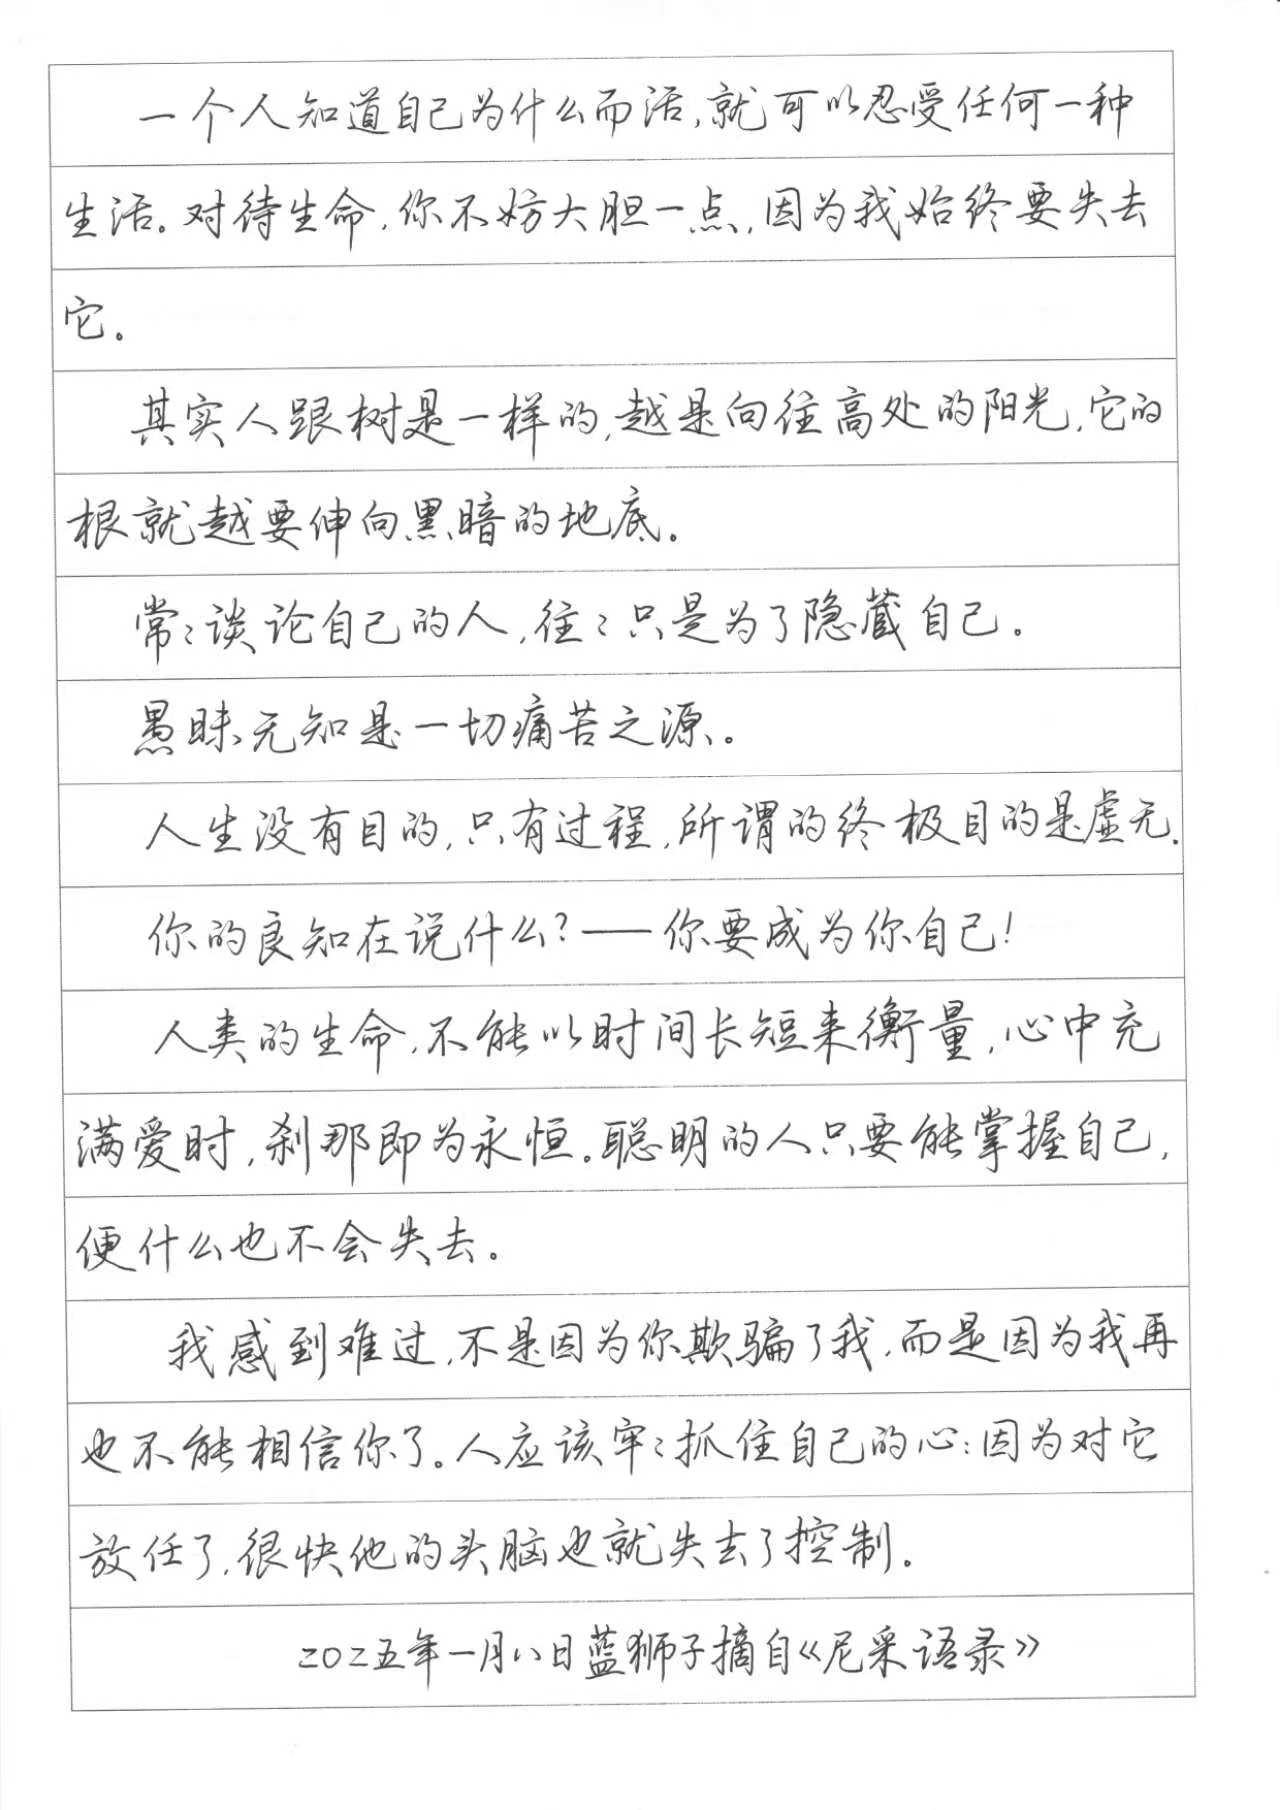 一个人知道自己为什么而活,就可以忍受任何一种
生活。对待生命,你不妨大胆一点,因为我始终要失去
它。
其实人跟树是一样的,越是向往高处的阳光,它的
根就越要伸向黑暗的地底。
常々谈论自己的人,往々只是为了隐藏自己。
愚昧无知是一切痛苦之源。
人生没有目的,只有过程,所谓的终极目的是虚无.
你的良知在说什么?——你要成为你自己!
人类的生命,不能以时间长短来衡量,心中充
满爱时,刹那即为永恒。聪明的人只要能掌握自己,
便什么也不会失去。
我感到难过,不是因为你欺骗了我,而是因为我再
也不能相信你了。人应该牢々抓住自己的心:因为对它
放任了,很快他的头脑也就失去了控制。
二〇二五年一月八日蓝狮子摘自《尼采语录》